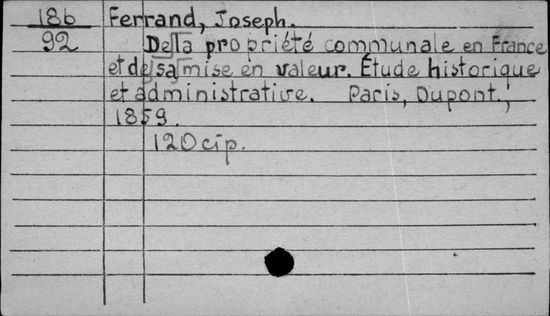 186 Ferrand, Joseph.
92 De la propriété communale en France
et de sa mise en valeur. Étude historique
et administrative. Paris, Dupont,
1859.
120 cip.